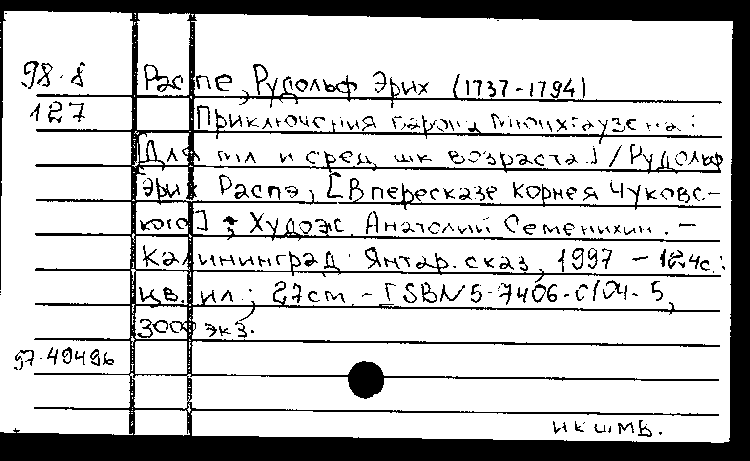 98-8 Распе, Рудольф Эрих (1737-1794)
127 Приключения барона Мюнхгаузена:
[Для мл и сред шк возраста] / Рудольф
Эрих Распэ, [В пересказе Корнея Чуковс-
кого] ; Худож. Анатолий Семенихин. -
Калининград: Янтар. сказ, 1997 - 124с.:
цв. ил.; 27cm. - ISBN 5-7406-0104-5,
3000 экз.
97-49496